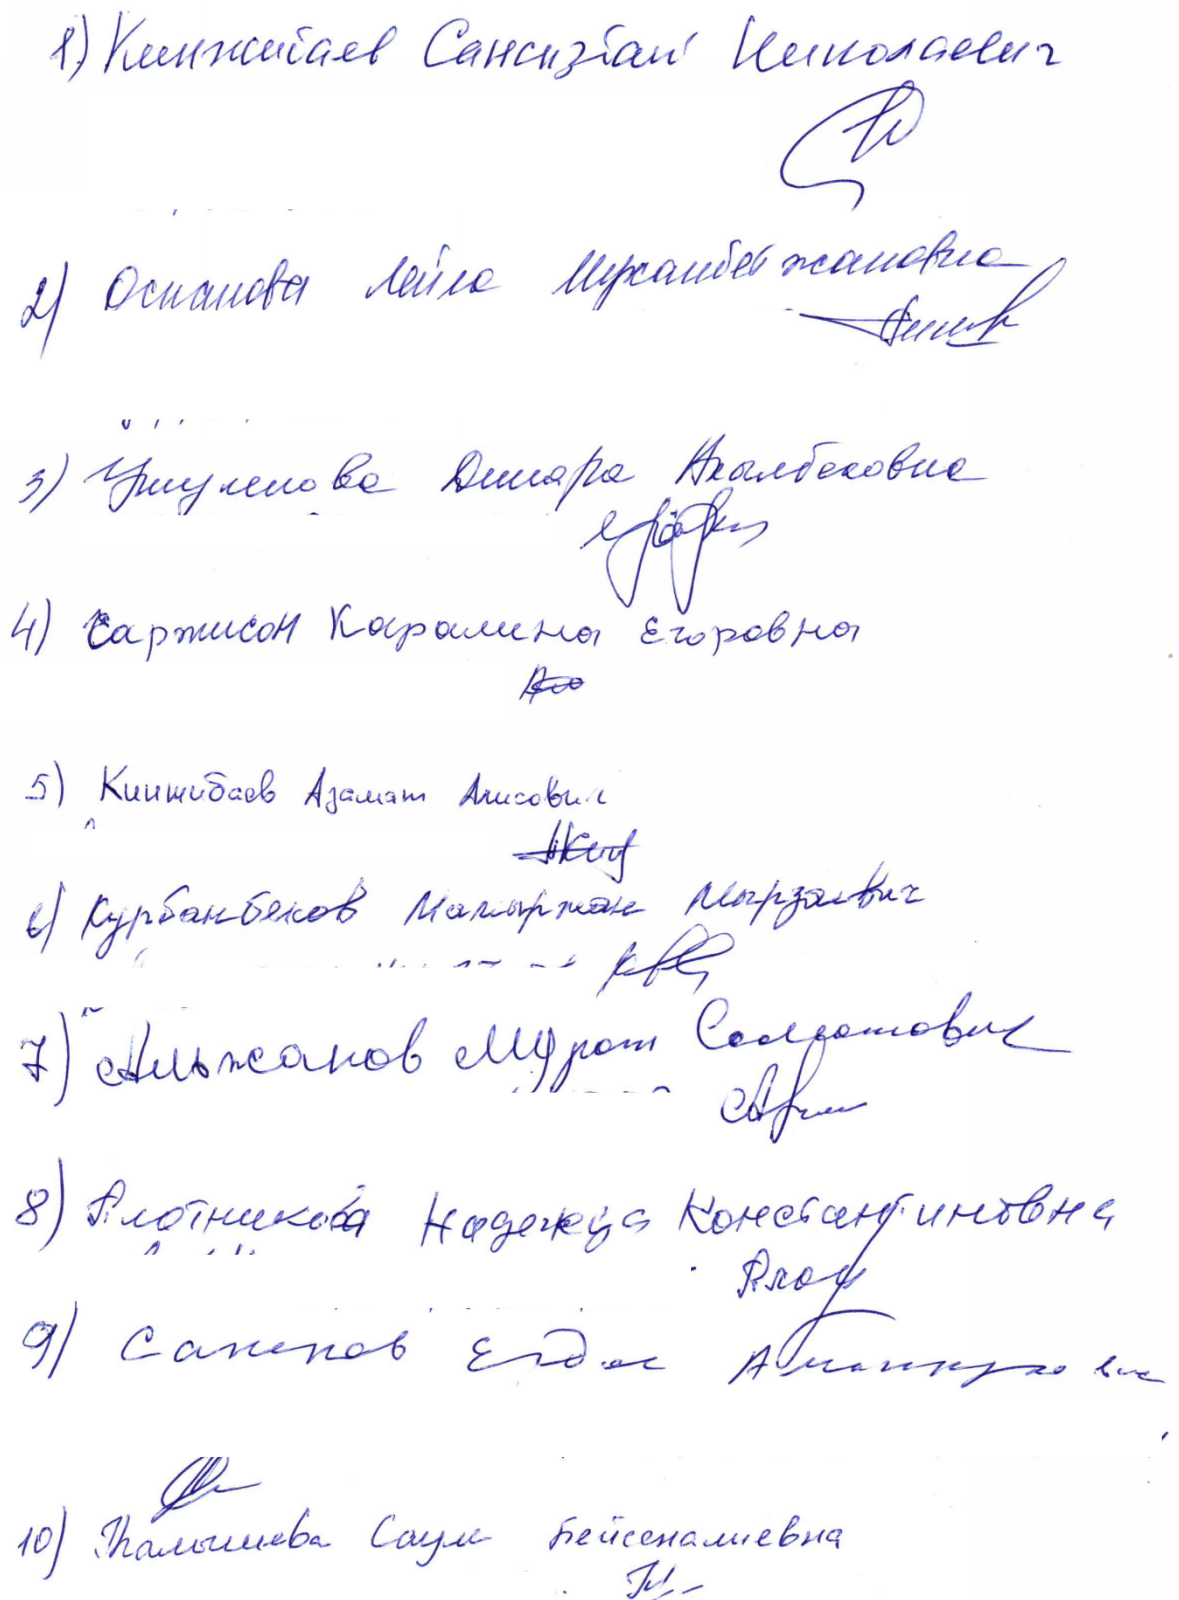 1) Кинжибаев Сансызбай Николаевич
2) Оспанова Лейла Муканбетжановна
3) Динара Акылбековна
4) Саржисон Каралина Егоровна
5) Кинжибаев Азамат Анисович
6) Курбанбеков Мамыржан Мырзаевич
7) Альжанов Мурат Солтатович
8) Плотникова Надежда Константиновна
9) Сакенов
10) Малышева Сауле Бейсеналиевна